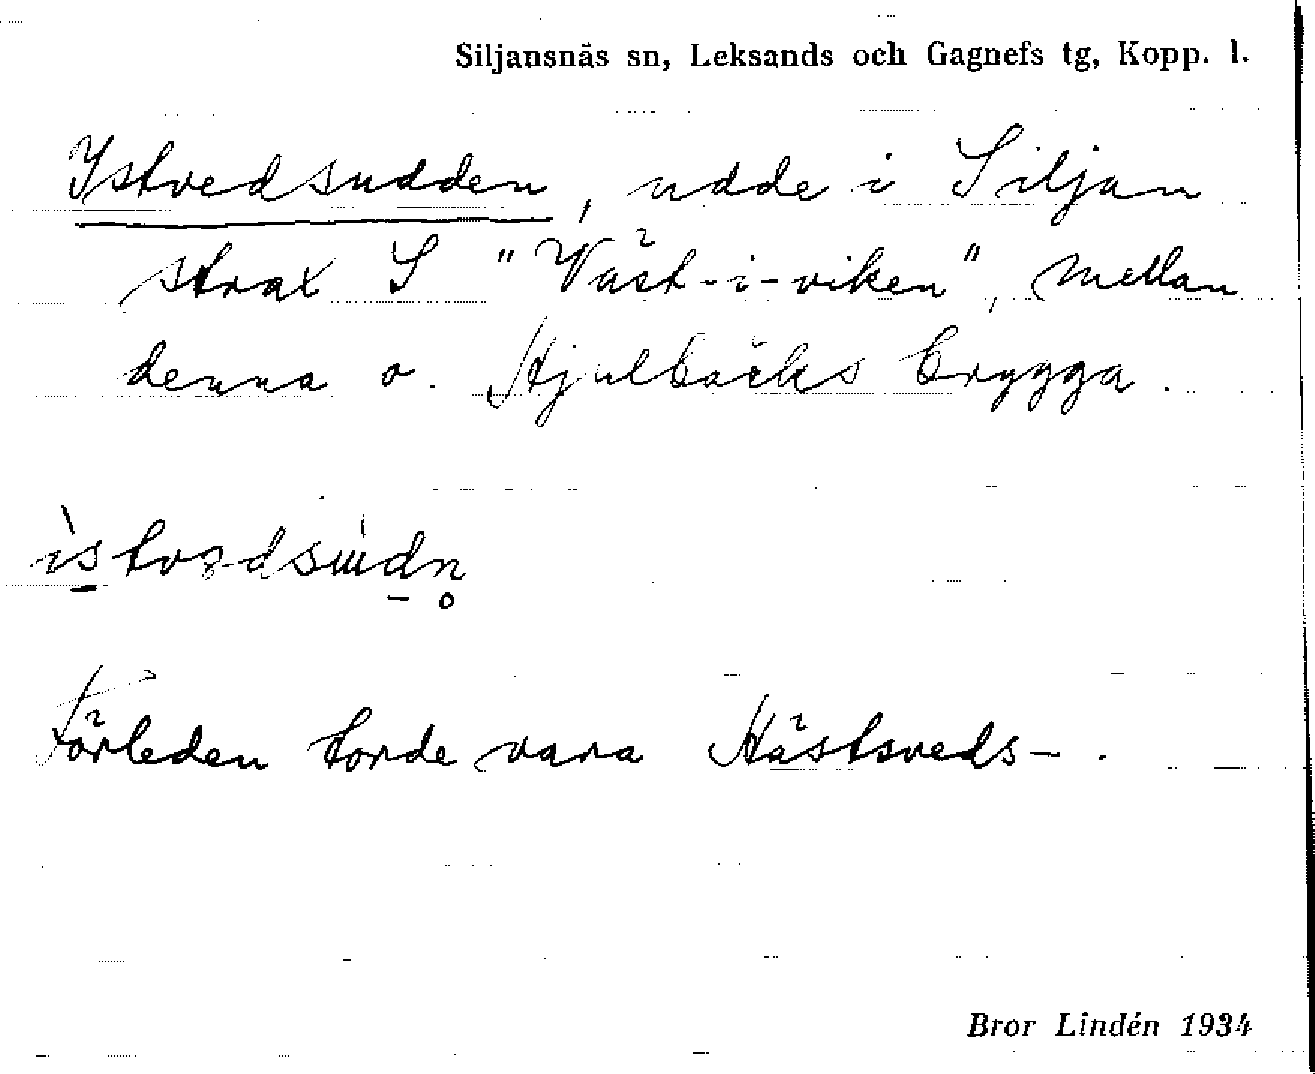 Siljansnäs sn, Leksands och Gagnefs tg, Kopp. l.
Istvedsudden, udde i Siljan
strax S "Väst-i-viken", mellan
denna o. Hjulbäcks brygga.
Förleden torde vara Hästsveds-.
Bror Lindén 1934